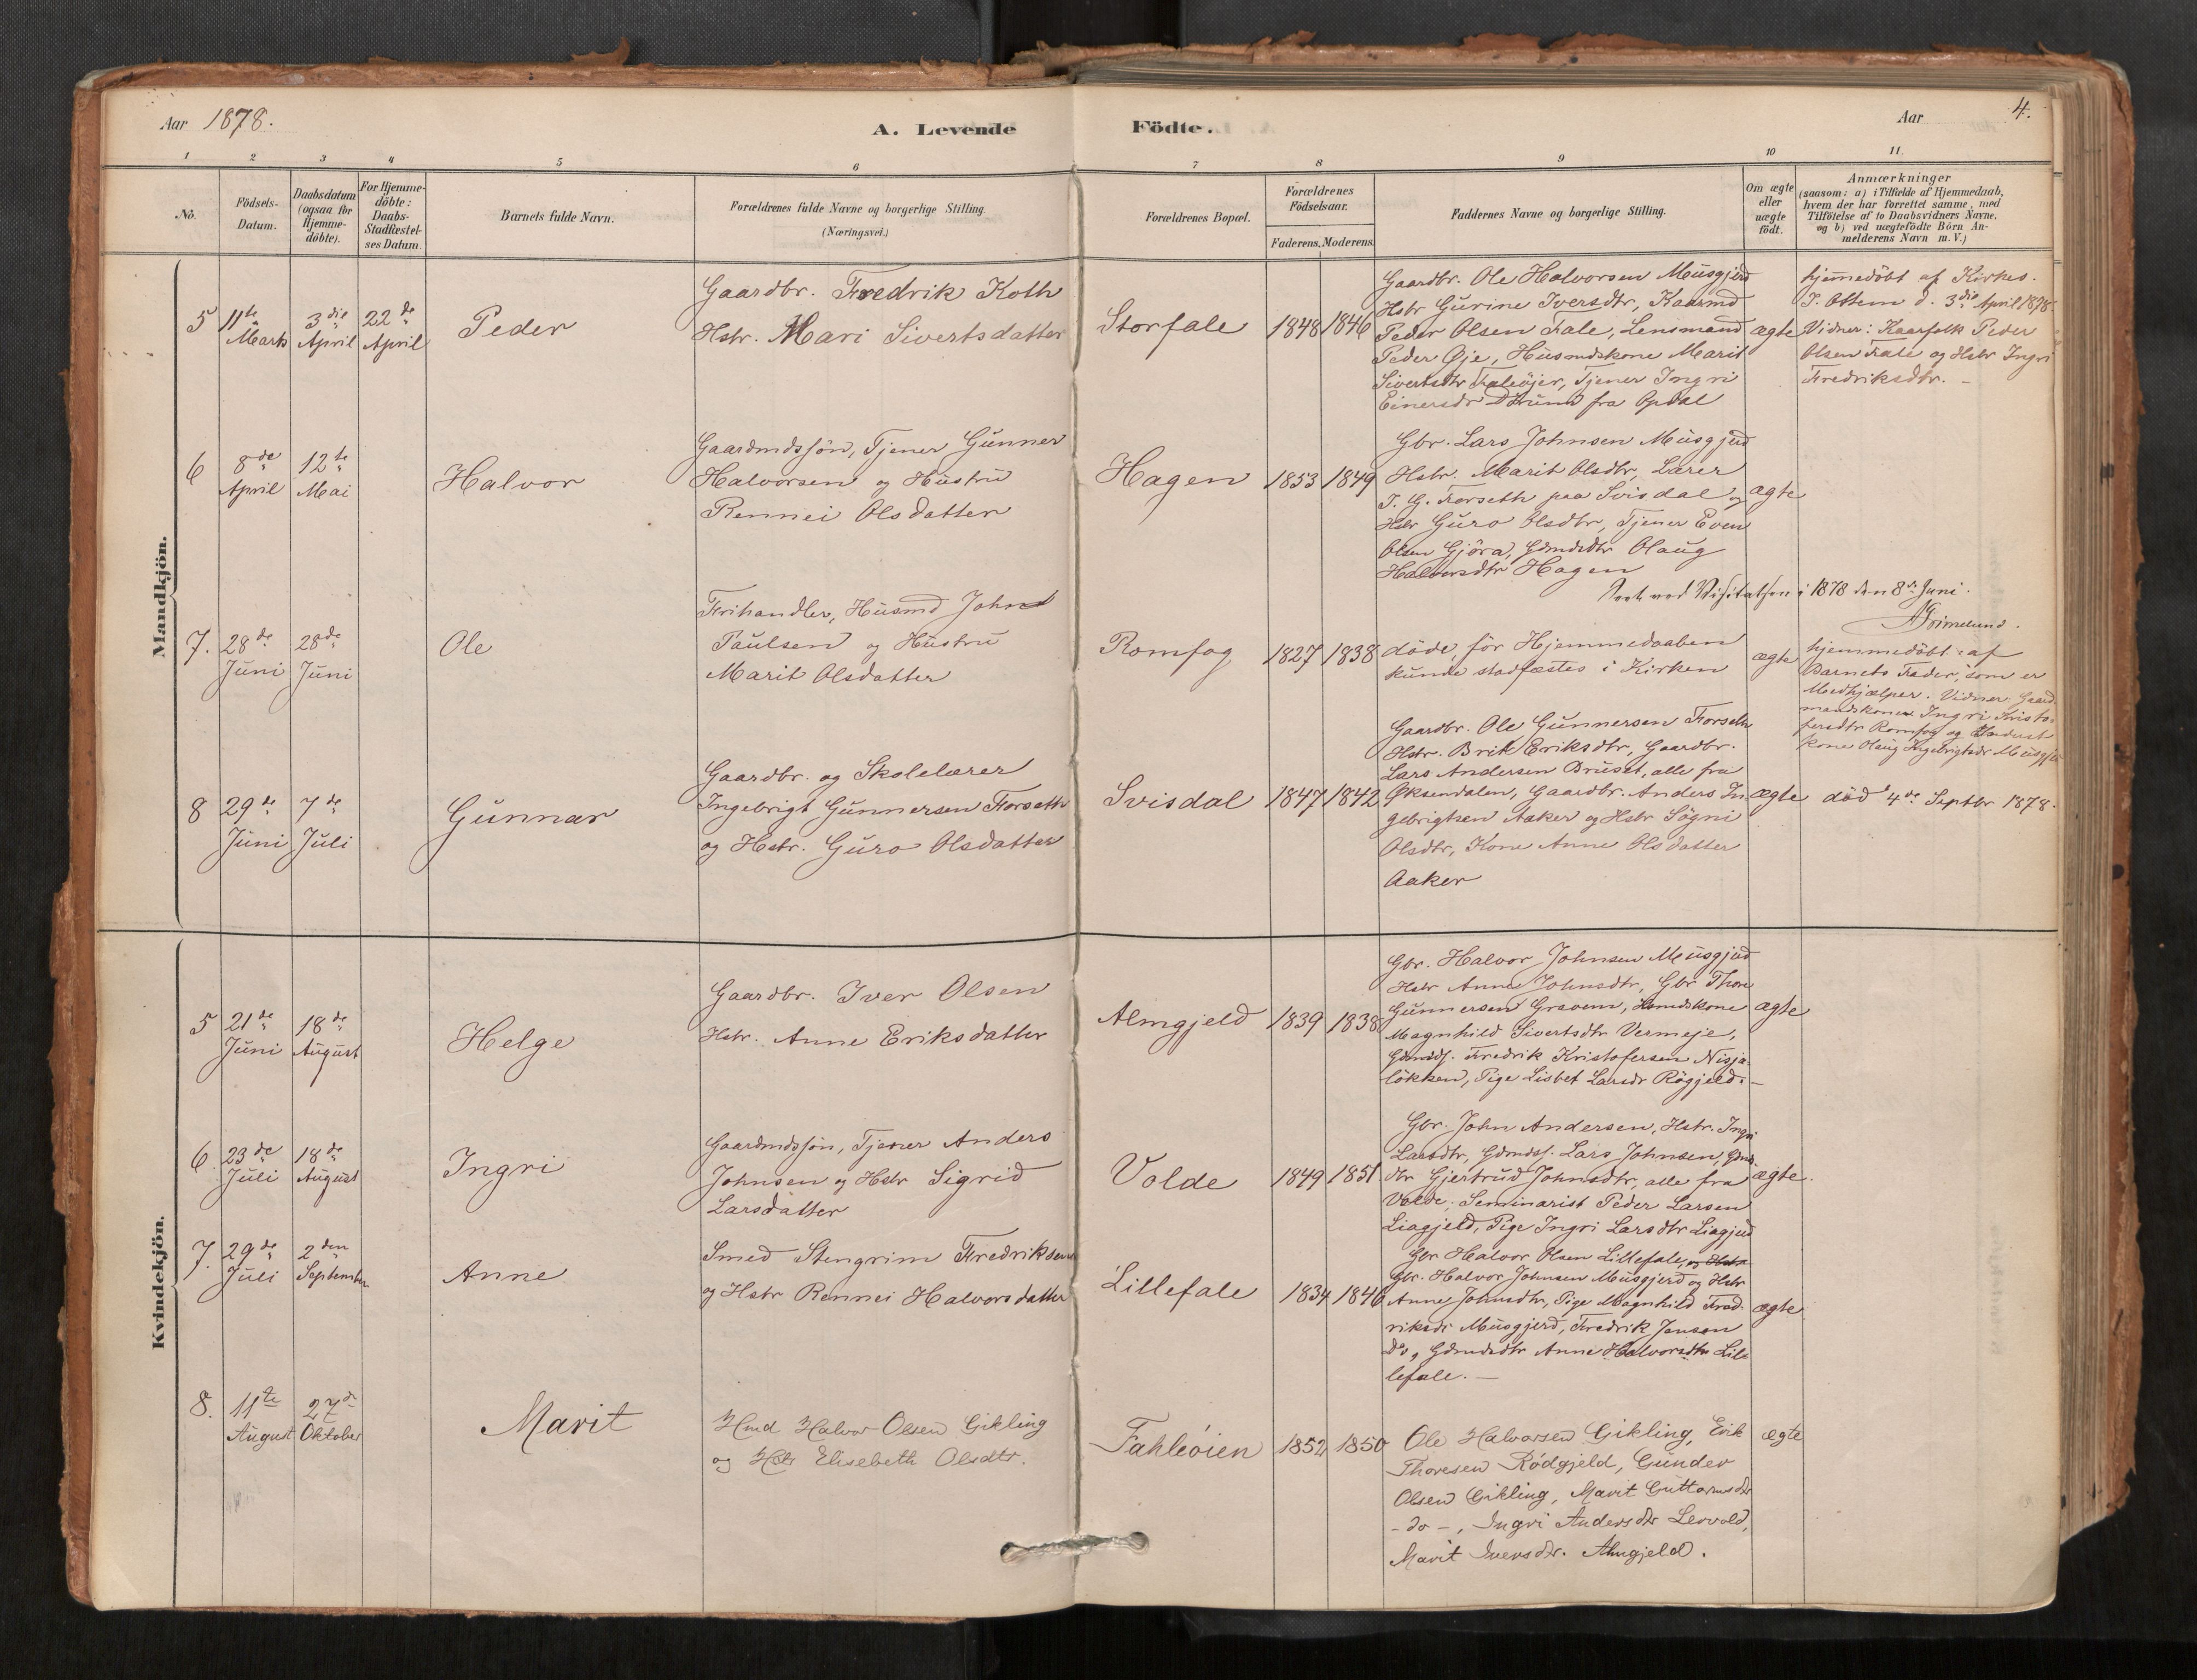 Aar 1878.
A. Levende
Födte.
Aar
4.
1 2 3 4 5 6 7 8 9 10 11.
No.
Födsels-
Datum.
Daabsdatum
(ogsaa for
Hjemme-
döbte).
For Hjemme-
döbte:
Daabs-
Stadfæstel-
ses Datum.
Barnets fulde Navn.
Forældrenes fulde Navne og borgerlige Stilling.
(Næringsvei.)
Forældrenes Bopæl.
Forældrenes
Födselsaar.
Faderens. Moderens.
Faddernes Navne og borgerlige Stilling.
Om ægte
eller
uægte
födt.
Anmærkninger
(saasom: a) i Tilfælde af Hjemmedaab,
hvem der har forrettet samme, med
Tilföielse af to Daabsvidners Navne,
og b) ved uægtefödte Börn An-
melderens Navn m.V.)
Mandkjön.
5
11te
Marts
3die
April
22de
April
Peder
Gaardbr. Fredrik Koth
Hstr. Mari Sivertsdatter
Storfale
1848 1846
Gaardbr. Ole Halvorsen Musgjerd
Hstr Gurine Iversdtr, Kaarmd
Peder Olsen Fale, Lensmand
Peder Øje, Husmdskone Marit
Sivertsdtr Faleöjer, Tjener Ingri
Einersdr fra Opdal
ægte
hjemmedöbt af Kirkes.
I. Ottem d. 3die April 1878.
Vidner: Kaarfolk Peder
Olsen Fale og Hstr Ingri
Fredriksdtr. -
6
8de
April
12te
Mai
Halvor
Gaardmdssön, Tjener Gunner
Halvorsen og Hustru
Rennei Olsdatter
Hagen
1853 1849
Gbr. Lars Johnsen Musgjerd
Hstr. Marit Olsdtr, Lærer
I. G. Forseth paa Svisdal og
Hstr Guro Olsdtr, Tjener Even
Olsen Gjöra, Gdmdsdtr Olaug
Halvorsdtr Hagen
ægte
ved Visitatsen i 1878 den 8de Juni.
Grimelund.
7.
28de
Juni
28de
Juni
Ole
Frihandler, Husmd John
Paulsen og Hustru
Marit Olsdatter
Romfog
1827 1838
döde, för Hjemmedaaben
kunde stadfæstes i Kirken
ægte
hjemmedöbt af
Barnets Fader, som er
Medhjælper. Vidner: Gaard
mandskone Ingri Kristo-
fersdtr Romfog og
kone Olaug Ingebrigtsdr Musgjerd
8
29de
Juni
7de
Juli
Gunnar
Gaardbr. og Skolelærer
Ingebrigt Gunnersen Forseth
og Hstr. Guro Olsdatter
Svisdal
1847 1842
Gaardbr. Ole Gunnersen Forseth
Hstr. Brit Eriksdtr, Gaardbr.
Lars Andersen Bruset, alle fra
Øksendalen, Gaardbr. Anders In-
gebrigtsen Aaker og Hstr Sögni
Olsdtr, Kone Anne Olsdatter
Aaker
ægte
död 4de Septbr 1878.
Kvindekjön.
5
21de
Juni
18de
August
Helge
Gaardbr. Iver Olsen
Hstr. Anne Eriksdatter
Almgjeld
1839 1838
Gbr. Halvor Johnsen Musgjerd
Hstr Anne Johnsdtr, Gbr Thore
Gunnersen Gravem, Husmdskone
Magnhild Sivertsdtr Vermeje,
Gdmdss. Fredrik Kristofersen Nisja-
lökken, Pige Lisbet Larsdr Rögjeld. -
ægte
6.
23de
Juli
18de
August
Ingri
Gaardmdssön, Tjener Anders
Johnsen og Hstr Sigrid
Larsdatter
Volde
1849 1851
Gbr. John Andersen, Hstr. Ingri
Larsdtr, Gdmdss. Lars Johnsen, Gdmds-
dtr Gjertrud Johnsdtr, alle fra
Volde; Seminarist Peder Larsen
Liagjeld, Pige Ingri Larsdtr Liagjeld
ægte.
7.
29de
Juli
2den
September
Anne
Smed Stengrim Fredriksen
og Hstr Rennei Halvorsdatter
Lillefale
1834 1846
Gbr Halvor Olsen Lillefale, og Hstr
Gbr. Halvor Johnsen Musgjerd og Hstr
Anne Johnsdtr, Pige Magnhild Fred-
riksdr Musgjerd, Fredrik Jensen
do, Gdmdsdtr Anne Halvorsdtr Lil-
lefale. -
ægte
8.
11te
August
27de
Oktober
Marit
Hmd Halvor Olsen Gikling
og Hstr Elisebeth Olsdtr.
Fahleöien
1852 1850
Ole Halvorsen Gikling, Erik
Thoresen Rödgjeld, Gunder
Olsen Gikling, Marit Guttormsdtr
- do -, Ingri Andersdtr Leevold,
Marit Iversdtr. Almgjeld.
ægte